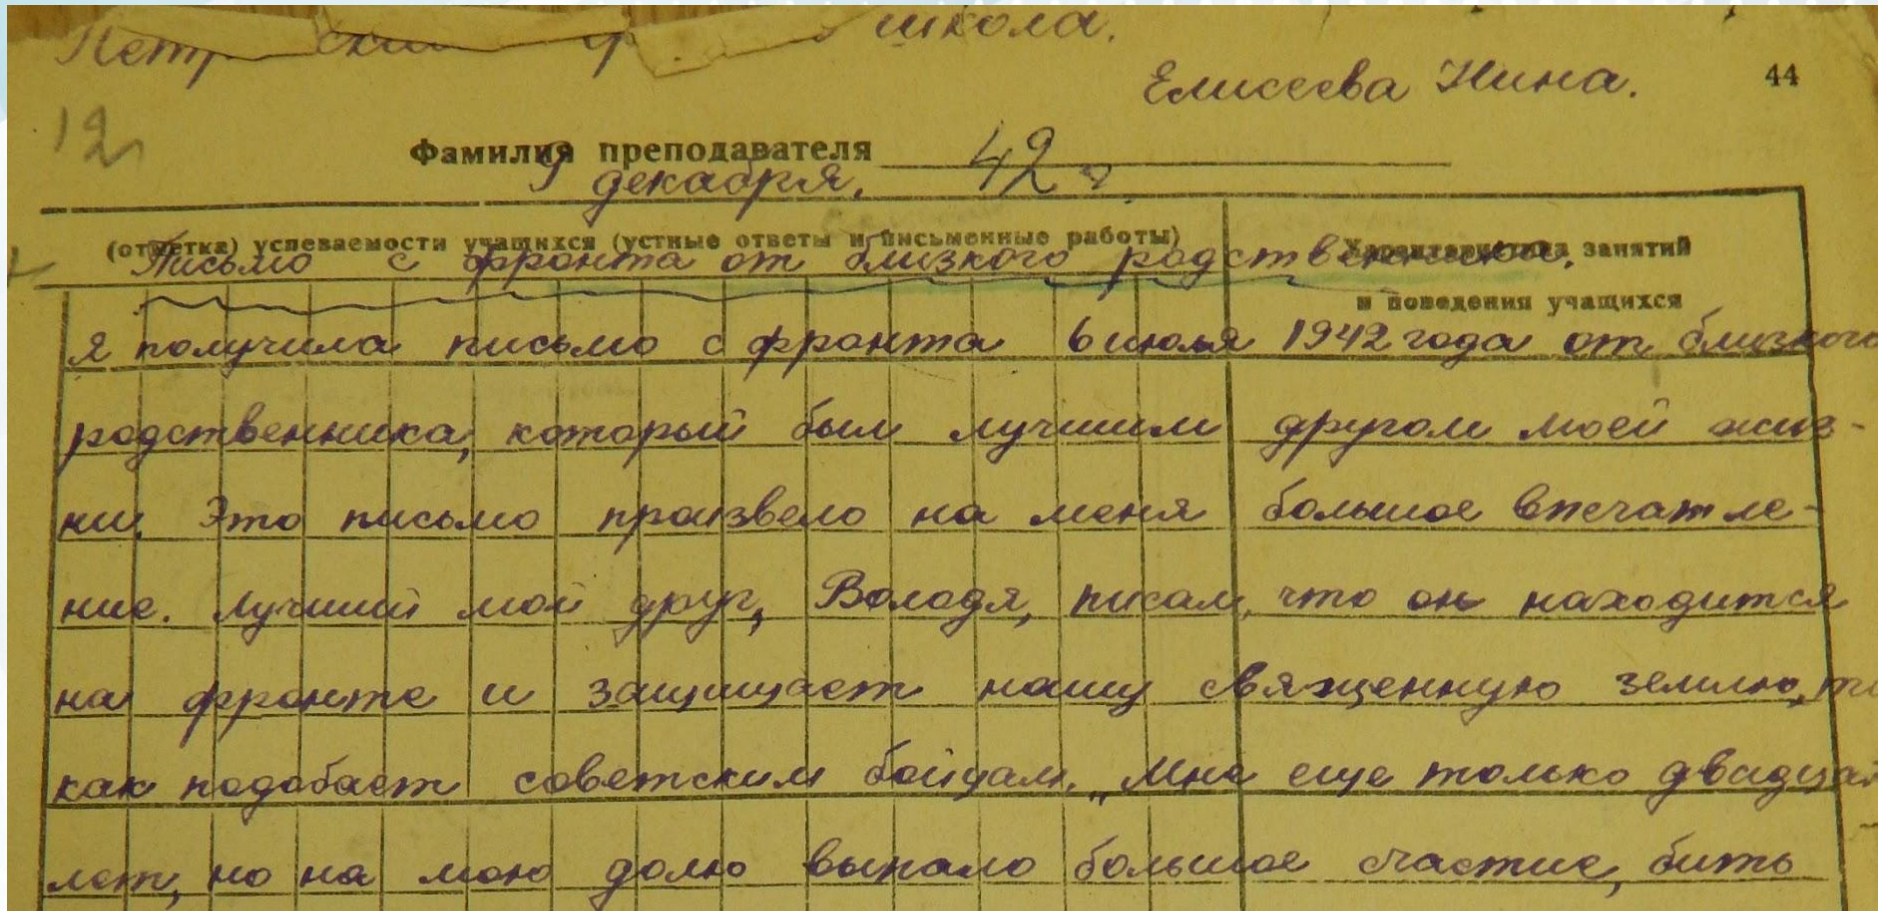 школа.
Елисеева Нина. 44
12
Фамилия преподавателя
9 декабря. 42 г.
(отметка) успеваемости учащихся (устные ответы и письменные работы) Характеристика занятий
Письмо с фронта от близкого родственника.
и поведения учащихся
Я получила письмо с фронта 6 июля 1942 года от близкого
родственника, который был лучшим другом моей жиз-
ни. Это письмо произвело на меня большое впечатле-
ние. Лучший мой друг, Володя, писал, что он находится
на фронте и защищает нашу священную землю,
как подобает советским бойцам. „Мне еще только
лет, но на мою долю выпало большое счастие, бить